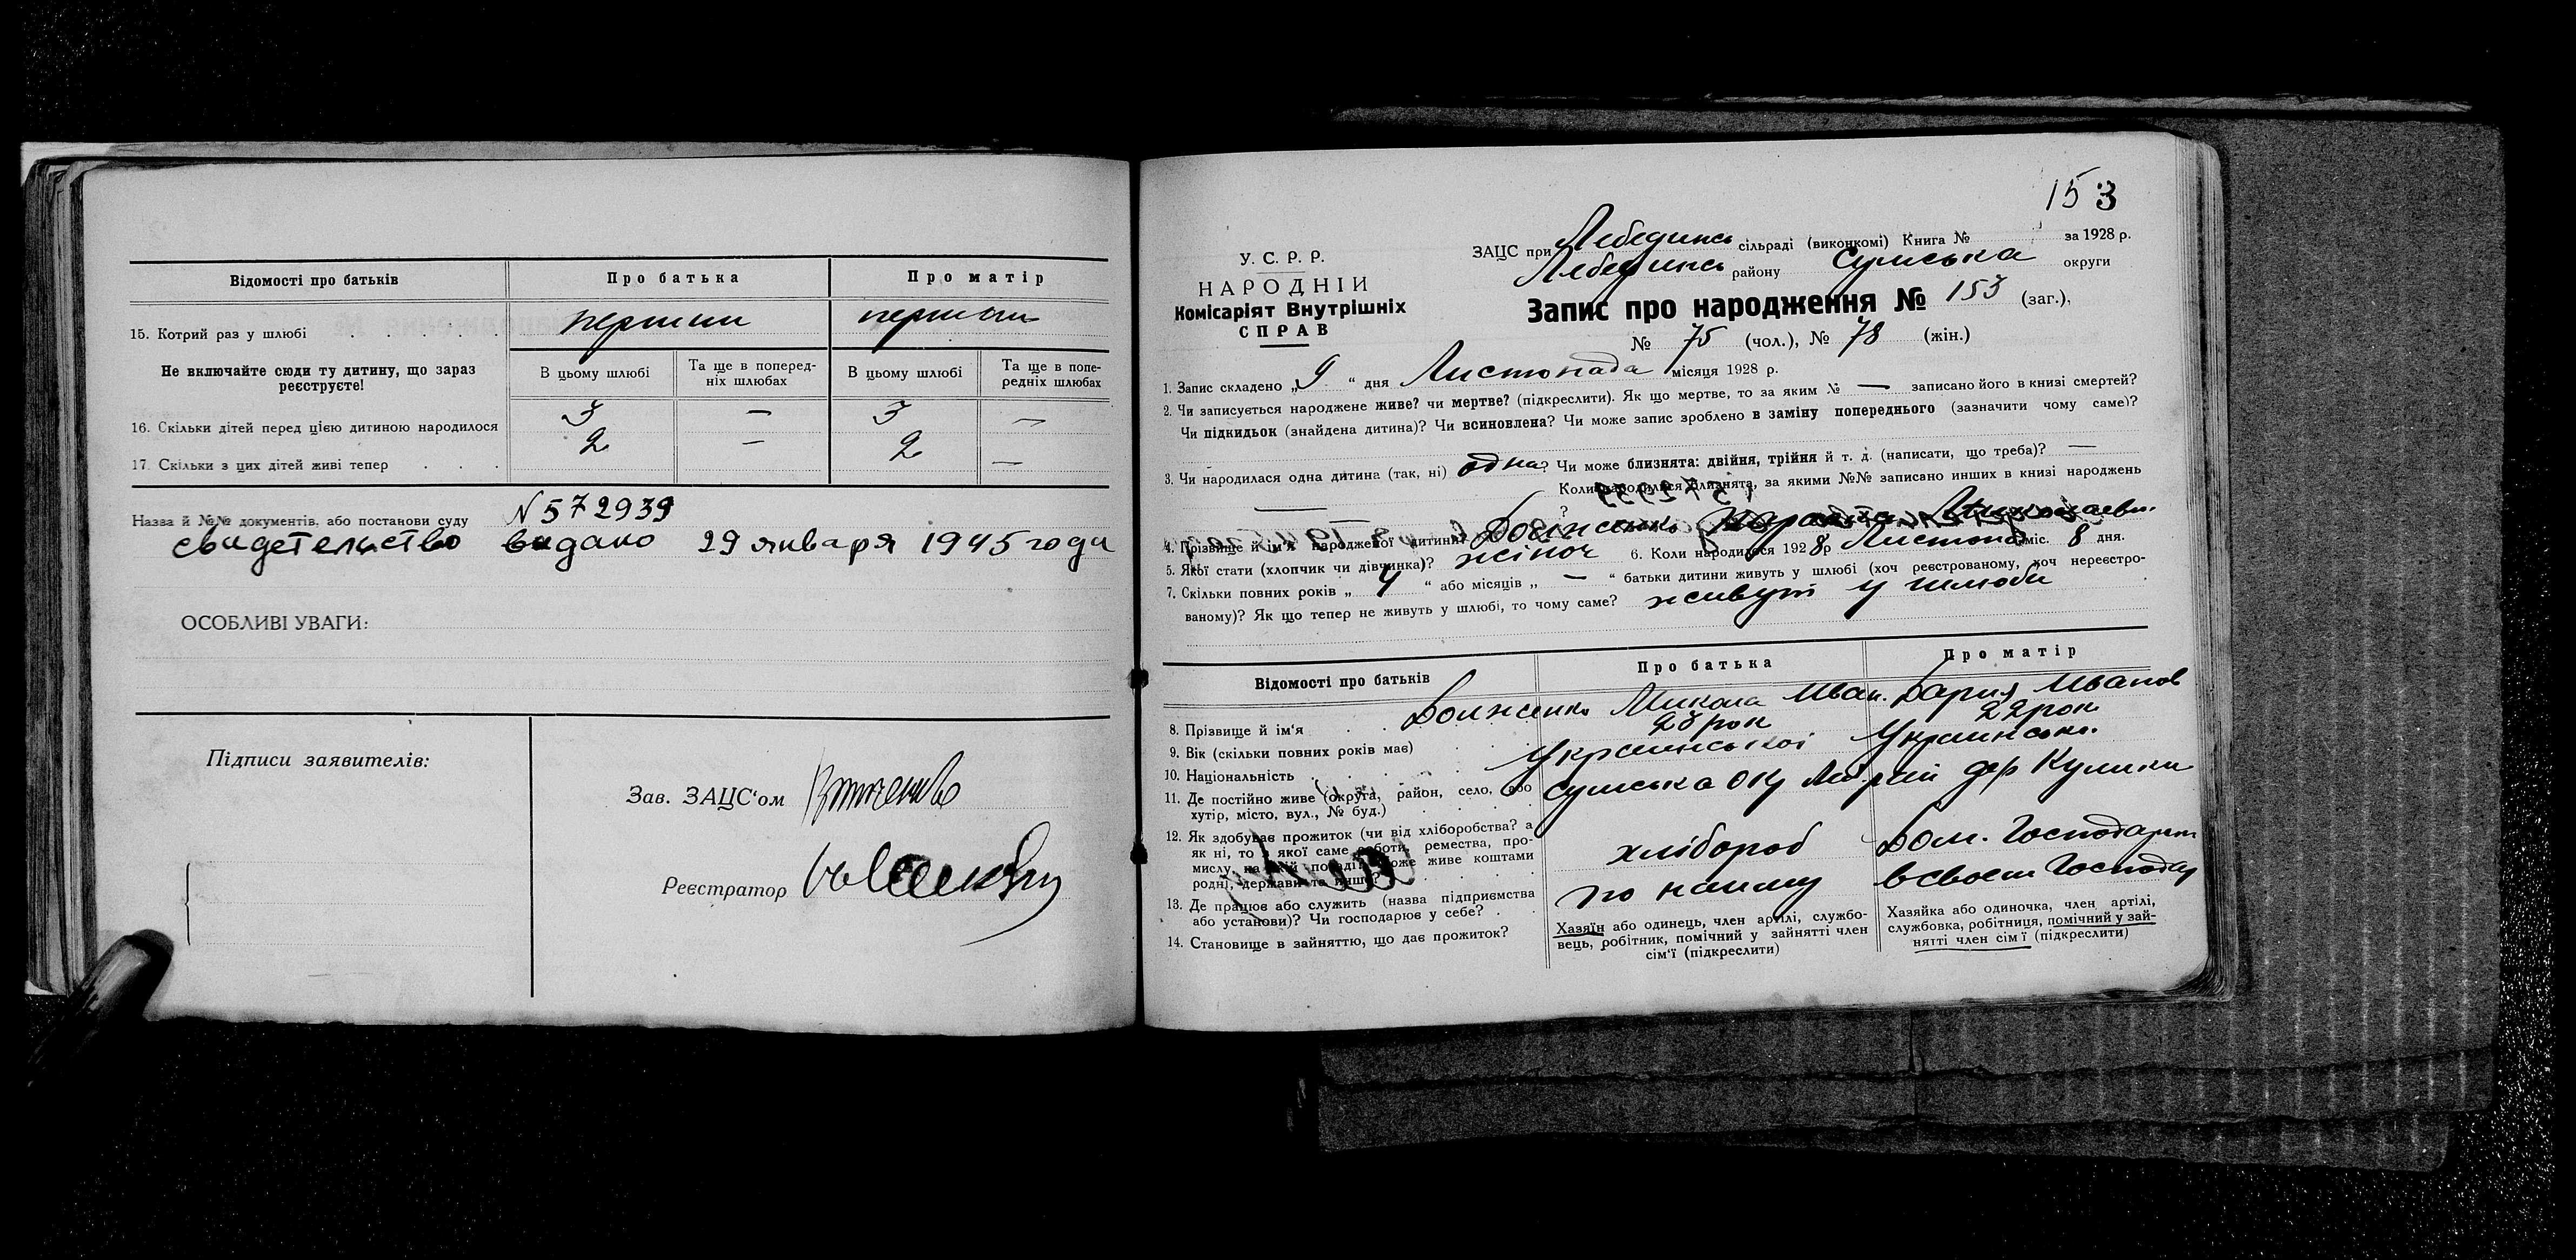 Відомості про батьків
Про батька
Про матір
15. Котрий раз у шлюбі . . . . .
перший
перший
Не включайте сюди ту дитину, що зараз
реєструєте!
В цьому шлюбі
Та ще в поперед-
ніх шлюбах
В цьому шлюбі
Та ще в попе-
редніх шлюбах
16. Скільки дітей перед цією дитиною народилося
3 — 3 —
17. Скільки з цих дітей живі тепер . . .
2 — 2 —
Назва й №№ документів, або постанови суду N 572939
свидетельство видано 29 января 1945 года
ОСОБЛИВІ УВАГИ:
Підписи заявителів:
Зав. ЗАЦС'ом
Реєстратор
153
У. С. Р. Р.
НАРОДНІЙ
Комісаріят Внутрішніх
СПРАВ
ЗАЦС при Лебединсь сільраді (виконкомі) Книга № за 1928 р.
Лебединсь району Сумська округи
Запис про народження № 153 (заг.),
№ 75 (чол.), № 78 (жін.)
1. Запис складено „9" дня Листопада місяця 1928 р.
2. Чи записується народжене живе? чи мертве? (підкреслити). Як що мертве, то за яким № — записано його в книзі смертей?
Чи підкидьок (знайдена дитина)? Чи всиновлена? Чи може запис зроблено в заміну попереднього (зазначити чому саме)?
3. Чи народилася одна дитина (так, ні) одна? Чи може близнята: двійня, трійня й т. д. (написати, що треба)? —
Коли народилися близнята, за якими №№ записано инших в книзі народжень
— ?
4. Прізвище й ім'я народженої дитини? Долженко
5. Якої стати (хлопчик чи дівчинка)? жіноч 6. Коли народилося 1928 р Листопад міс. 8 дня.
7. Скільки повних років „4" або місяців „—" батьки дитини живуть у шлюбі (хоч реєстрованому, хоч нереєстро-
ваному)? Як що тепер не живуть у шлюбі, то чому саме? живуть у шлюби
Відомості про батьків
Про батька
Про матір
8. Прізвище й ім'я . . Долженко Микола Иван. Дария Иванов
9. Вік (скільки повних років має) рок 22 рок
10. Національність . . . . . Украинської Украинсько.
11. Де постійно живе (округа, район, село, або
хутір, місто, вул., № буд.)
Сумська Окр Леб. рай дер Кулики
12. Як здобуває прожиток (чи від хліборобства? а
як ні, то з якої саме роботи, ремества, про-
мислу, на якій посаді? Може живе коштами
родні, держави та инше?
хлібороб
Дом. Господарст
13. Де працює або служить (назва підприємства
або установи)? Чи господарює у себе? .
по найму
в своєм Господар
14. Становище в зайняттю, що дає прожиток?
Хазяїн або одинець, член артілі, службо-
вець, робітник, помічний у зайнятті член
сім'ї (підкреслити)
Хазяйка або одиночка, член артілі,
службовка, робітниця, помічний у зай-
нятті член сім'ї (підкреслити)